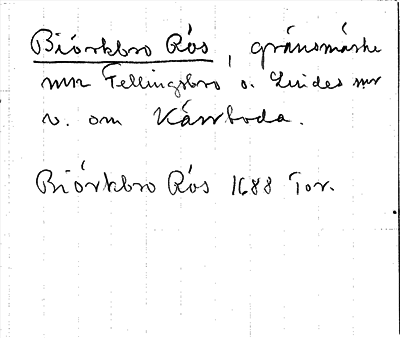 Biörkbro Rös, gränsmärke
mn Fellingsbro o. Lindes snr
v. om Kärrboda.
Biörkbro Rös 1688 Tor.